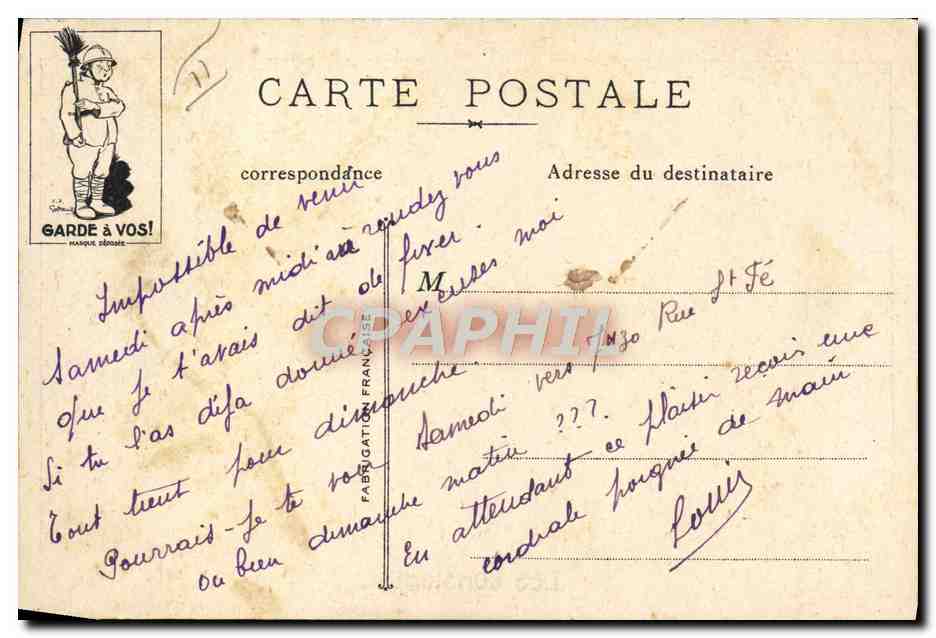 11
CARTE POSTALE
correspondance
Adresse du destinataire
GARDE à VOS!
MARQUE DÉPOSÉE
M
FABRICATION FRANÇAISE
CPAPHIL
Impossible de venir
Samedi après midi au rendez vous
que je t'avais dit de fixer.
Si tu l'as déja donné excuses moi
Tout tient pour dimanche.
Pourrais-je te voir Samedi vers 7h30 Rue St Fé
ou bien dimanche matin ???
En attendant ce plaisir reçois une
cordiale poignée de main
Louis